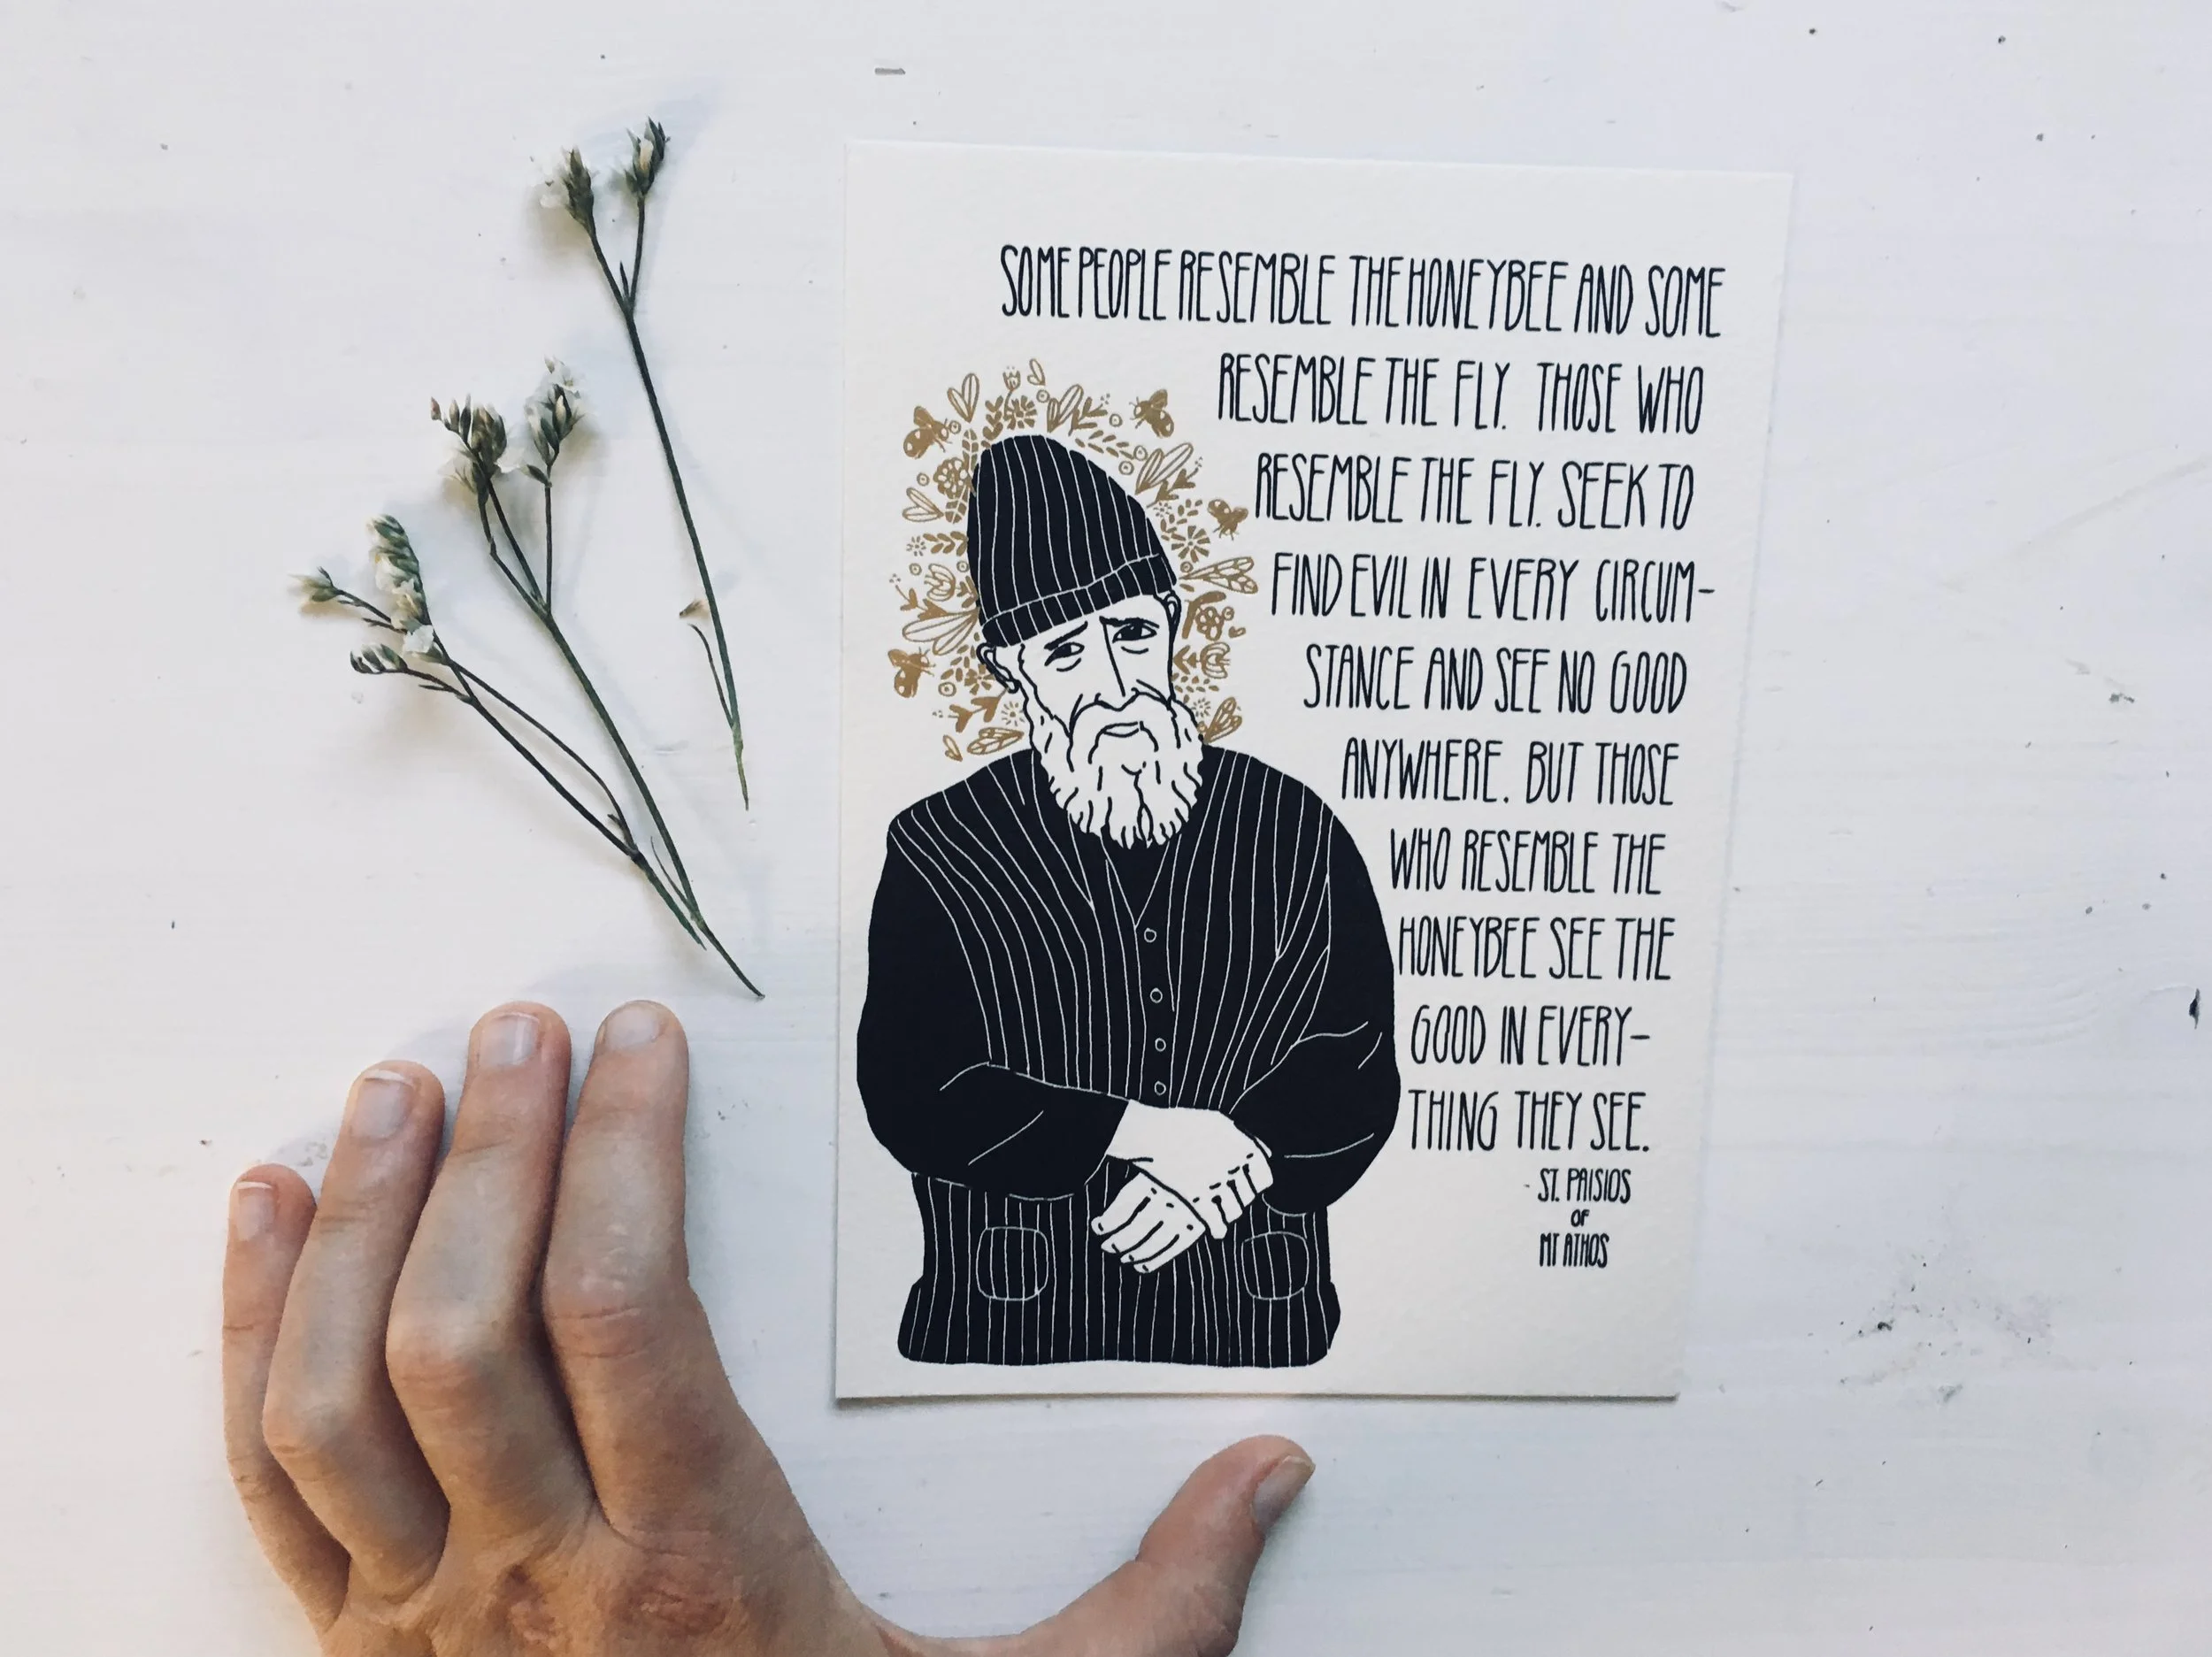 SOME PEOPLE RESEMBLE THE HONEYBEE AND SOME
RESEMBLE THE FLY. THOSE WHO
RESEMBLE THE FLY. SEEK TO
FIND EVIL IN EVERY CIRCUM-
STANCE AND SEE NO GOOD
ANYWHERE. BUT THOSE
WHO RESEMBLE THE
HONEYBEE SEE THE
GOOD IN EVERY-
THING THEY SEE.
- ST. PAISIOS
OF
MT ATHOS